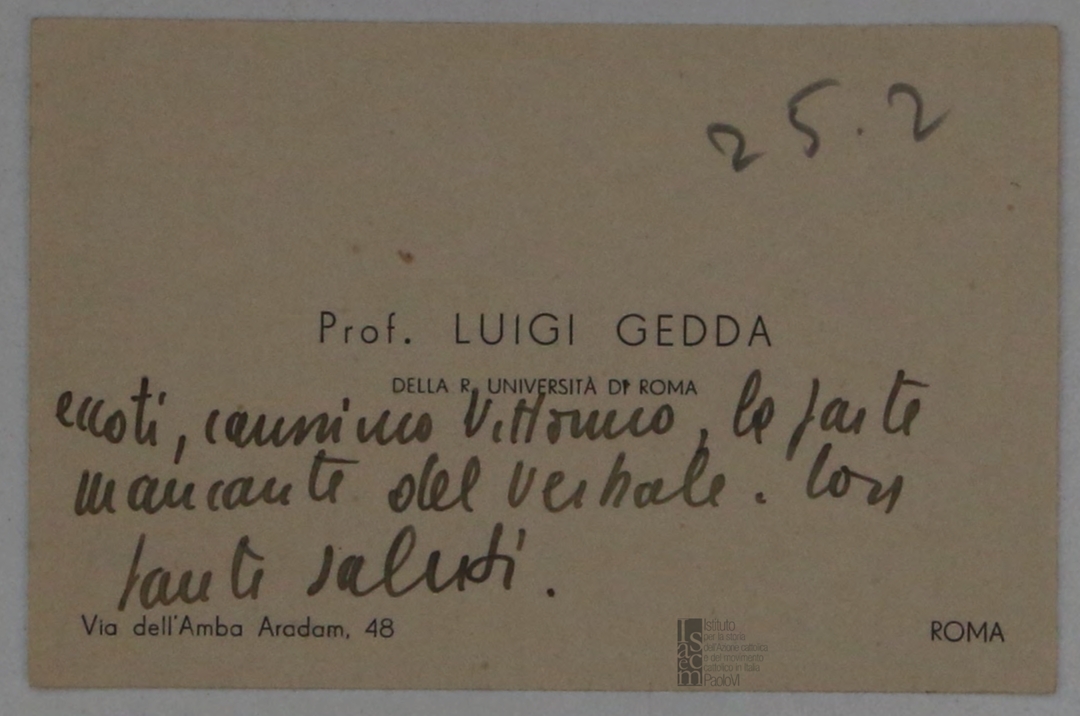 25.2
Prof. LUIGI GEDDA
DELLA R. UNIVERSITÀ DI ROMA
eccoti, carissimo Vittorino, la parte
mancante del verbale. Con
tanti saluti.
Via dell'Amba Aradam, 48
ROMA
Isacem
Istituto
per la storia
dell'Azione cattolica
e del movimento
cattolico in Italia
PaoloVI